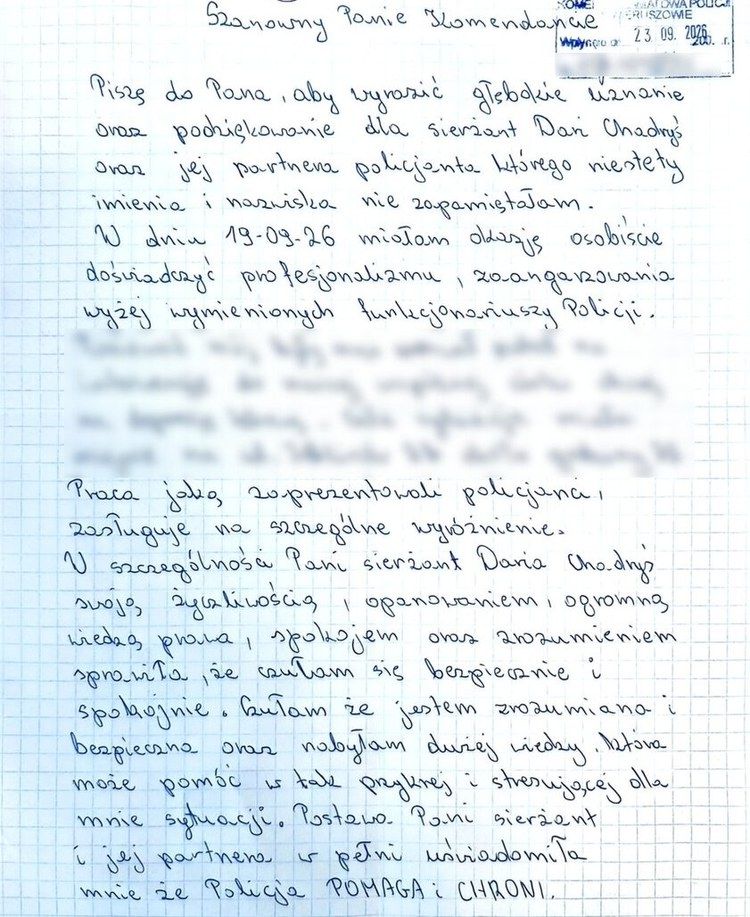 Szanowny Panie Komendancie
POLICJI
23.09.2026
200 r.
Piszę do Pana, aby wyrazić głębokie uznanie
oraz podziękowanie dla sierżant Dari Chadryś
oraz jej partnera policjanta którego niestety
imienia i nazwiska nie zapamiętałam.
W dniu 19-09-26 miałam okazję osobiście
doświadczyć profesjonalizmu, zaangarzowania
wyżej wymienionych funkcjonariuszy Policji.
Praca jaką zaprezentowali policjanci,
zasługuje na szczególne wyróżnienie.
W szczególności Pani sierżant Daria Chadryś
swoją życzliwością, opanowaniem, ogromną
wiedzą prawa, spokojem oraz zrozumieniem
sprawiła, że czułam się bezpiecznie i
spokojnie. Czułam że jestem zrozumiana i
bezpieczna oraz nabyłam dużej wiedzy, która
może pomóc w tak przykrej i stresującej dla
mnie sytuacji. Postawa Pani sierżant
i jej partnera w pełni uświadomiła
mnie że Policja POMAGA i CHRONI.